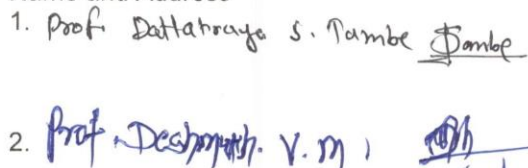 1. Prof. Dattatraya S. Tambe Dambe
2. Prof. Deshmukh. V.M.